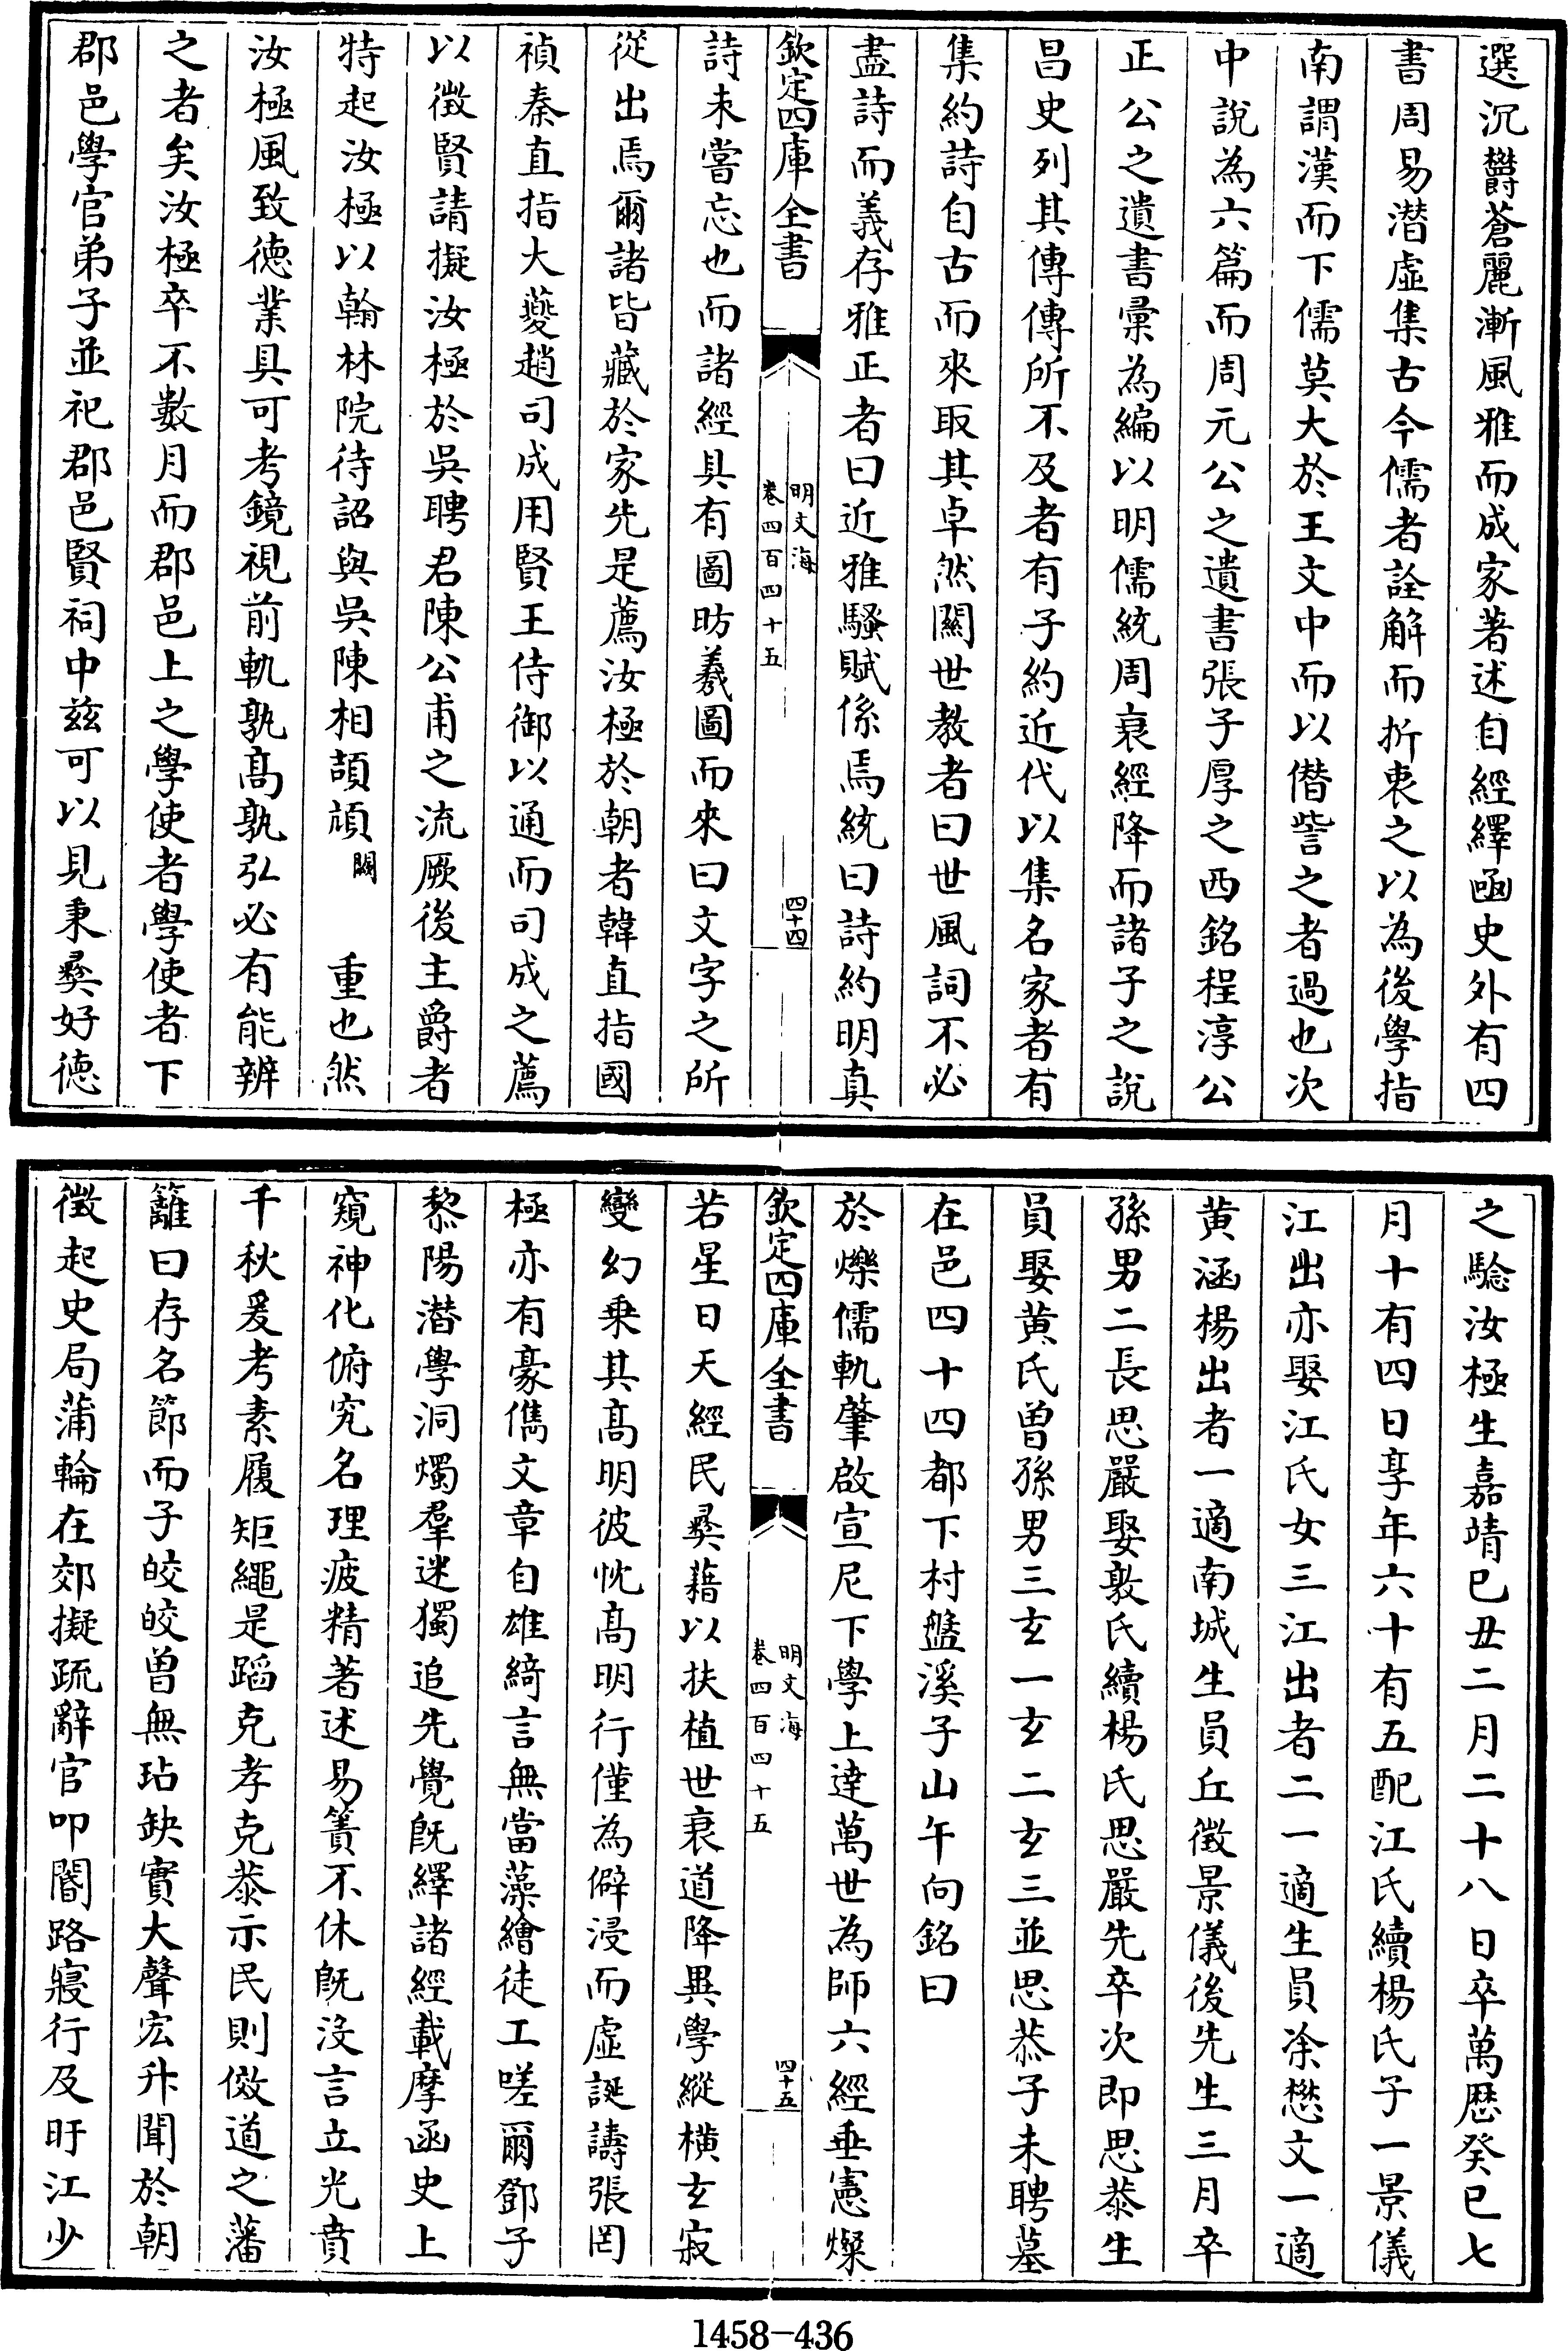 選沉欝蒼麗漸風雅而成家著述自經繹函史外有四
書周易潛虛集古今儒者詮解而折衷之以為後學指
南謂漢而下儒莫大於王文中而以僭訾之者過也次
中說為六篇而周元公之遺書張子厚之西銘程淳公
正公之遺書彙為編以明儒統周衰經降而諸子之說
昌史列其傳傳所不及者有子約近代以集名家者有
集約詩自古而來取其卓然關世教者曰世風詞不必
盡詩而義存雅正者曰近雅騷賦係焉統曰詩約明真
欽定四庫全書
明文海
卷四百四十五
四十四
詩未嘗忘也而諸經具有圖昉羲圖而來曰文字之所
從出焉爾諸皆藏於家先是薦汝極於朝者韓直指國
禎秦直指大夔趙司成用賢王侍御以通而司成之薦
以徵賢請擬汝極於吳聘君陳公甫之流厥後主爵者
特起汝極以翰林院待詔與吳陳相頡頏闕重也然
汝極風致德業具可考鏡視前軌孰高孰弘必有能辨
之者矣汝極卒不數月而郡邑上之學使者學使者下
郡邑學官弟子並祀郡邑賢祠中兹可以見秉彜好德
之驗汝極生嘉靖已丑二月二十八日卒萬歷癸巳七
月十有四日享年六十有五配江氏續楊氏子一景儀
江出亦娶江氏女三江出者二一適生員凃懋文一適
黄涵楊出者一適南城生員丘徵景儀後先生三月卒
孫男二長思嚴娶敖氏續楊氏思嚴先卒次即思恭生
員娶黄氏曾孫男三玄一玄二玄三並思恭子未聘墓
在邑四十四都下村盤溪子山午向銘曰
於爍儒軌肇啟宣尼下學上達萬世為師六經垂憲燦
欽定四庫全書
明文海
卷四百四十五
四十五
若星日天經民彜藉以扶植世衰道降異學縱横玄寂
變幻乗其高明彼忱高明行僅為僻浸而虛誕譸張罔
極亦有豪儁文章自雄綺言無當藻繪徒工嗟爾鄧子
黎陽潛學洞燭羣迷獨追先覺既繹諸經載摩函史上
窺神化俯究名理疲精著述易簀不休既没言立光賁
千秋爰考素履矩繩是蹈克孝克恭示民則傚道之藩
籬曰存名節而子皎皎曾無玷缺實大聲宏升聞於朝
徵起史局蒲輪在郊擬疏辭官叩閽路寢行及盱江少
1458-436